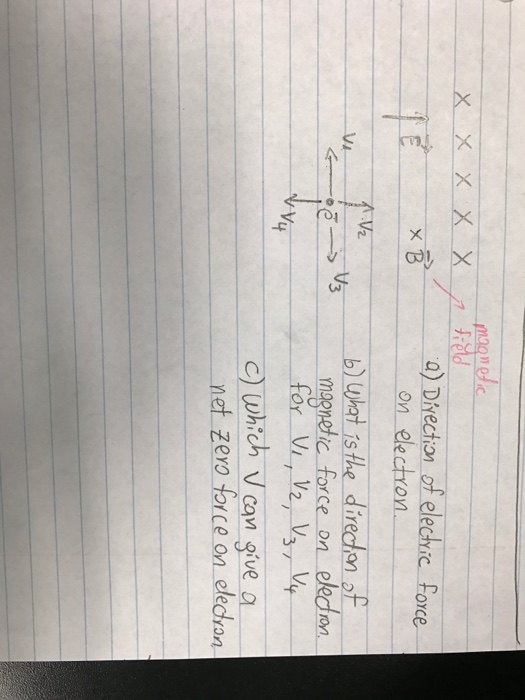 X X X X X
magnetic
field
E
x B
a) Direction of electric force
on electron.
V2
V1
e
V3
V4
b) What is the direction of
magnetic force on electron.
for V1, V2, V3, V4
c) which V can give a
net zero force on electron